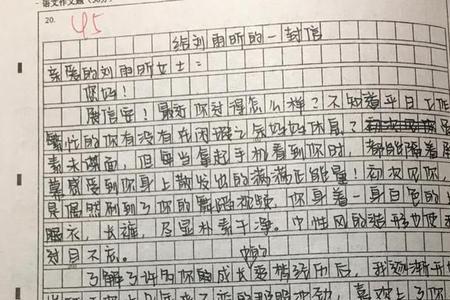 语文作文题
20.
45
给刘雨昕的一封信
亲爱的刘雨昕女士：
你好！
展信安！最近你过得怎么样？不知道平日工作
繁忙的你有没有在闲暇之余好好休息？
素未谋面，但每当拿起手机看到你时，都能隔着屏
幕感受到你身上散发出的满满正能量！初次见你，
是偶然刷到了你的舞蹈视频，你身着一身白色的上
眼衣，长裤，尽显朴素干净。中性风的造型也使我
过目不忘。
了解了许多你的成长蜕变经历后，我逐渐开
喜欢上了你